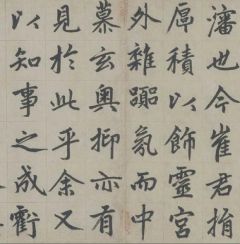 瀋世今崔君捐
厚積以飾靈宮
外雜囂氛而中
慕玄奧抑亦有
見於此乎余又
以知事之成虧